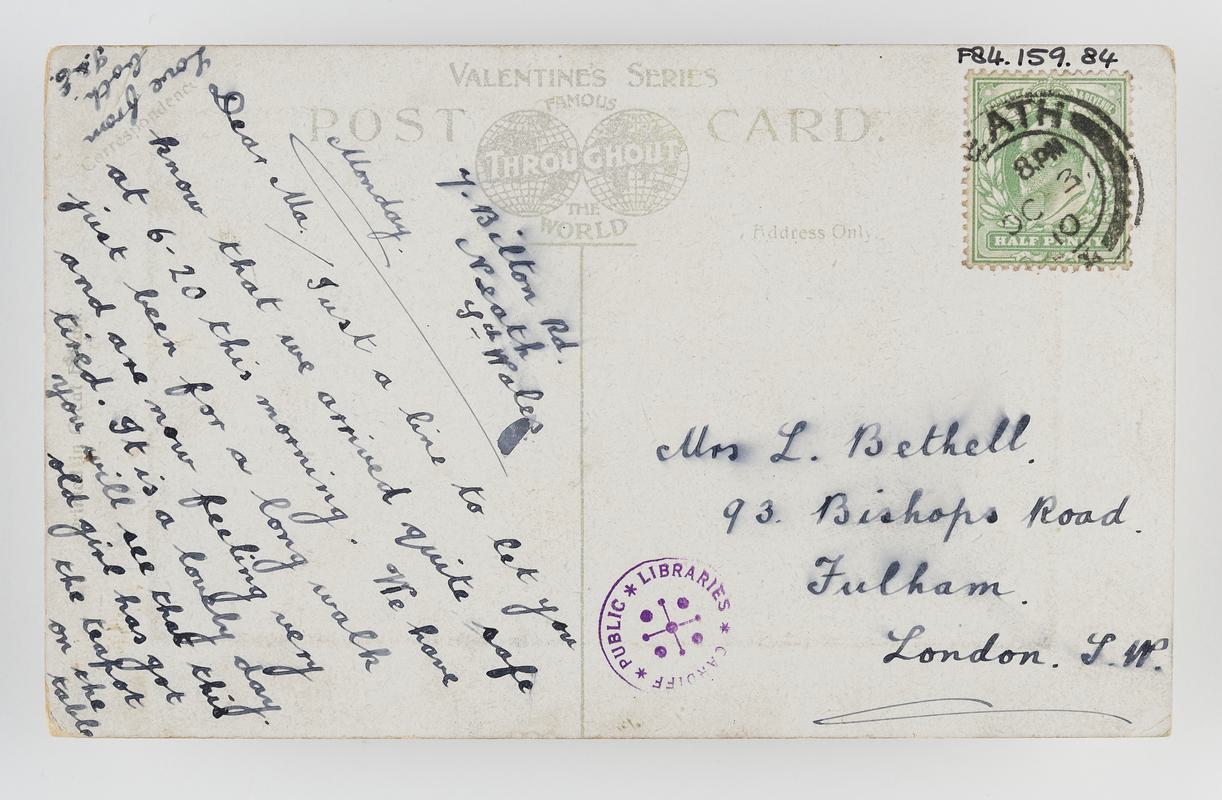 F84.159.84
VALENTINE'S SERIES
FAMOUS
POST CARD.
THROUGHOUT
THE
WORLD
Correspondence
Address Only.
EATH
8.PM
OC 3
10
HALF PENNY
7. Bilton Rd.
Neath
Sth Wales.
Monday.
Dear Ma. / Just a line to let you
know that we arrived quite safe
at 6-20 this morning. We have
just been for a long walk
and are now feeling very
tired. It is a lovely day.
you will see that this
old girl has got
the teapot
on the
table
Love
both from
Mrs L. Bethell.
93. Bishops Road.
Fulham.
London. S.W.
PUBLIC * LIBRARIES * CARDIFF *